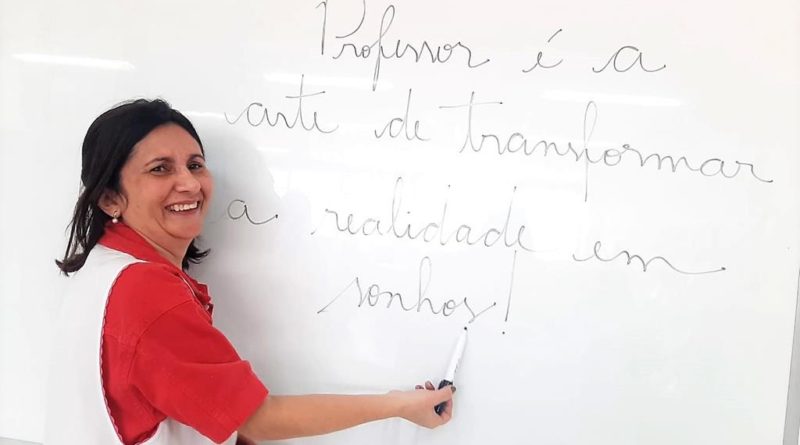 Professor é a
arte de transformar
a realidade em
sonhos!